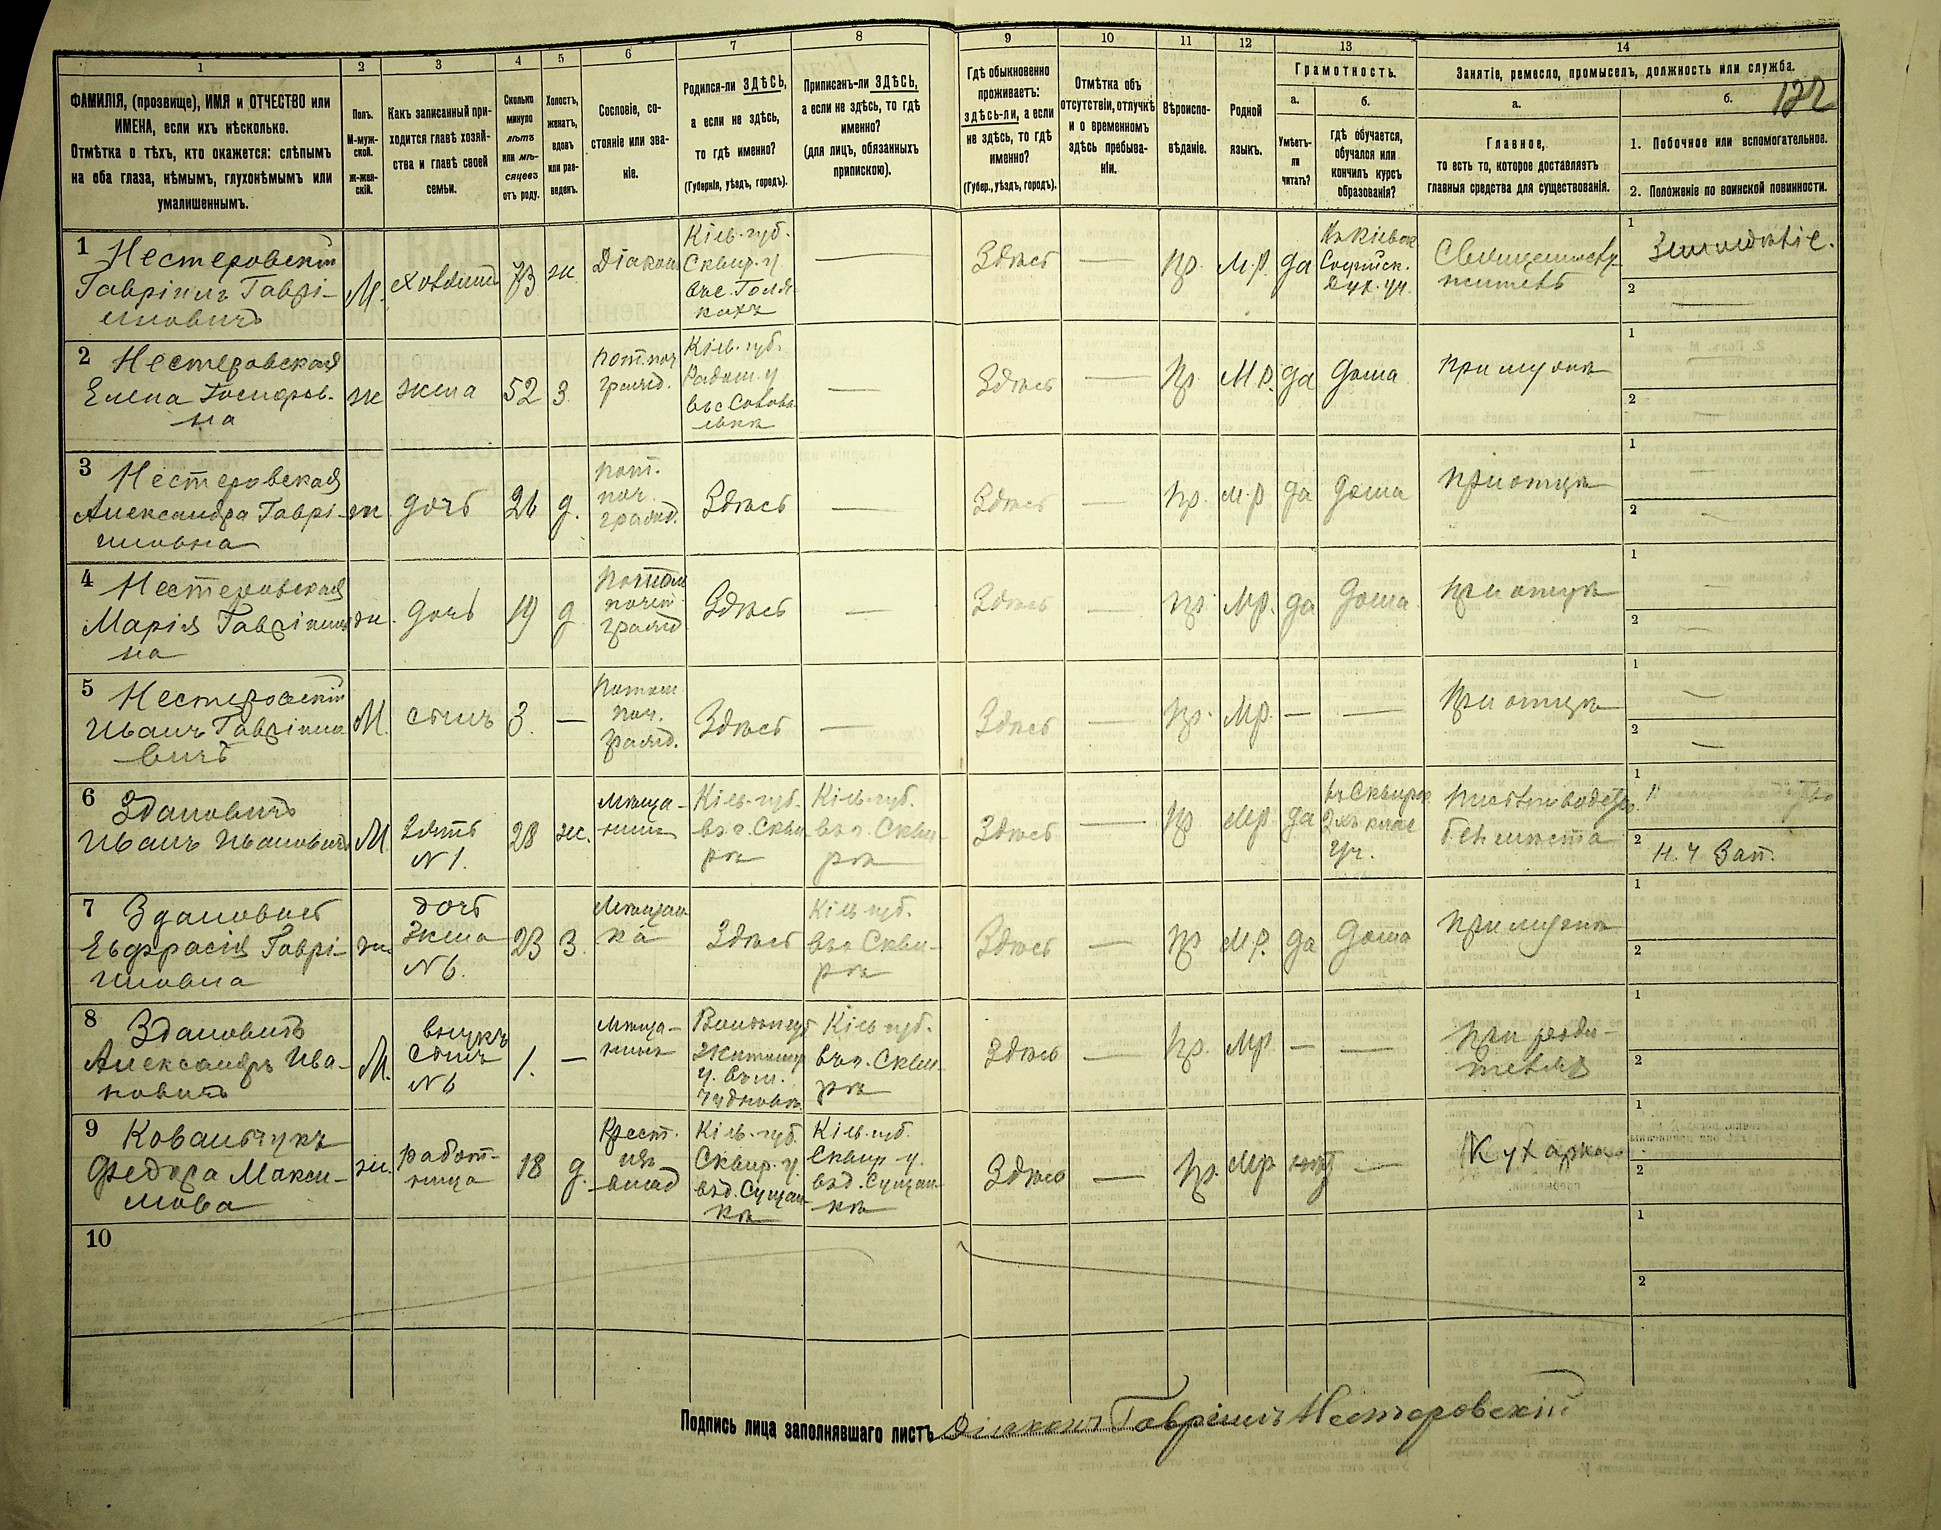 1
2
3
4
5
6
7
8
9
10
11
12
13
14
ФАМИЛІЯ, (прозвище), ИМЯ и ОТЧЕСТВО или
ИМЕНА, если ихъ нѣсколько.
Отмѣтка о тѣхъ, кто окажется: слѣпымъ
на оба глаза, нѣмымъ, глухонѣмымъ или
умалишеннымъ.
Полъ.
М-муж-
ской.
ж-жен-
скій.
Какъ записанный при-
ходится главѣ хозяй-
ства и главѣ своей
семьи.
Сколько
минуло
лѣтъ
или мѣ-
сяцевъ
отъ роду.
Холостъ,
женатъ,
вдовъ
или раз-
веденъ.
Сословіе, со-
стояніе или зва-
ніе.
Родился-ли ЗДѢСЬ,
а если не здѣсь,
то гдѣ именно?
(Губернія, уѣздъ, городъ).
Приписанъ-ли ЗДѢСЬ,
а если не здѣсь, то гдѣ
именно?
(для лицъ, обязанныхъ
припискою).
Гдѣ обыкновенно
проживаетъ:
здѣсь-ли, а если
не здѣсь, то гдѣ
именно?
(Губер., уѣздъ, городъ).
Отмѣтка объ
отсутствіи, отлучкѣ
и о временномъ
здѣсь пребыва-
ніи.
Вѣроиспо-
вѣданіе.
Родной
языкъ.
Грамотность.
а.
Умѣетъ-
ли
читать?
б.
гдѣ обучается,
обучался или
кончилъ курсъ
образованія?
Занятіе, ремесло, промыселъ, должность или служба.
а.
Главное,
то есть то, которое доставляетъ
главныя средства для существованія.
б.
1. Побочное или вспомогательное.
2. Положеніе по воинской повинности.
1 Нестеровскій
Гавріилъ Гаврі-
иловичъ
М.
хозяинъ
73
ж.
Діаконъ
Кіев. губ.
Сквир. у
въ с.
Здѣсь
пр.
М.р.
да
въ Кіево
Софійск.
Дух. уч.
Священнослу-
житель
1
Земледѣліе.
2
2 Нестеровская
Елена
на
ж
жена
52
з.
Пот. поч
гражд.
Кіев. губ.
Радом. у
въ с.
Здѣсь
пр
М.р.
да
дома
при мужѣ
1
2
3 Нестеровская
Александра Гаврі-
иловна
ж
дочь
26
д.
Пот.
поч.
гражд.
Здѣсь
Здѣсь
пр.
м.р
да
дома
при отцѣ
1
2
4 Нестеровская
Марія Гавріилов
на
ж.
дочь
19
д
Потом
почет
гражд
Здѣсь
Здѣсь
пр.
Мр.
да
дома
при отцѣ
1
2
5 Нестеровскій
Иванъ Гавріило
вичъ
М.
сынъ
3.
Потом
поч.
гражд.
Здѣсь
Здѣсь
пр.
Мр.
при отцѣ
1
2
6 Здановичъ
Иванъ Ивановичъ
М.
Зять
N 1.
28
ж.
Мѣща-
нинъ
Кіев. губ.
въ г. Скви
рѣ
Кіев. губ.
въ г.Скви-
рѣ
Здѣсь
пр
Мр
да
въ Сквирск
2хъ клас
Уч.
без мѣста
1
2
Н. Ч Зап.
7 Здановичъ
Евфрасія Гаврі-
иловна
ж
дочь
жена
N 6.
23
з.
Мѣщан
ка
Здѣсь
Кіев губ.
въ г Скви-
рѣ
Здѣсь
пр
М.р.
да
дома
при мужѣ
1
2
8 Здановичъ
Александръ Ива-
новичъ
М.
внукъ
сынъ
N 6
1.
Мѣща-
нинъ
Волын губ
Житомир
у. въ м.
Чудновѣ
Кіев губ.
въ г. Скви-
рѣ
Здѣсь
пр.
Мр
при роди-
теляхъ
1
2
9 Ковальчукъ
Федора Макси-
мова
ж.
работ-
ница
18
д.
Крест.
изъ
влад
Кіев. губ.
Сквир. у.
въ д. Сущан-
кѣ
Кіев. губ.
Сквир у.
въ д. Сущан-
кѣ
Здѣсь
пр.
Мр
нѣт
Кухарка
1
2
10
1
2
Подпись лица заполнявшаго листъ Діаконъ Гавріилъ Нестеровскій